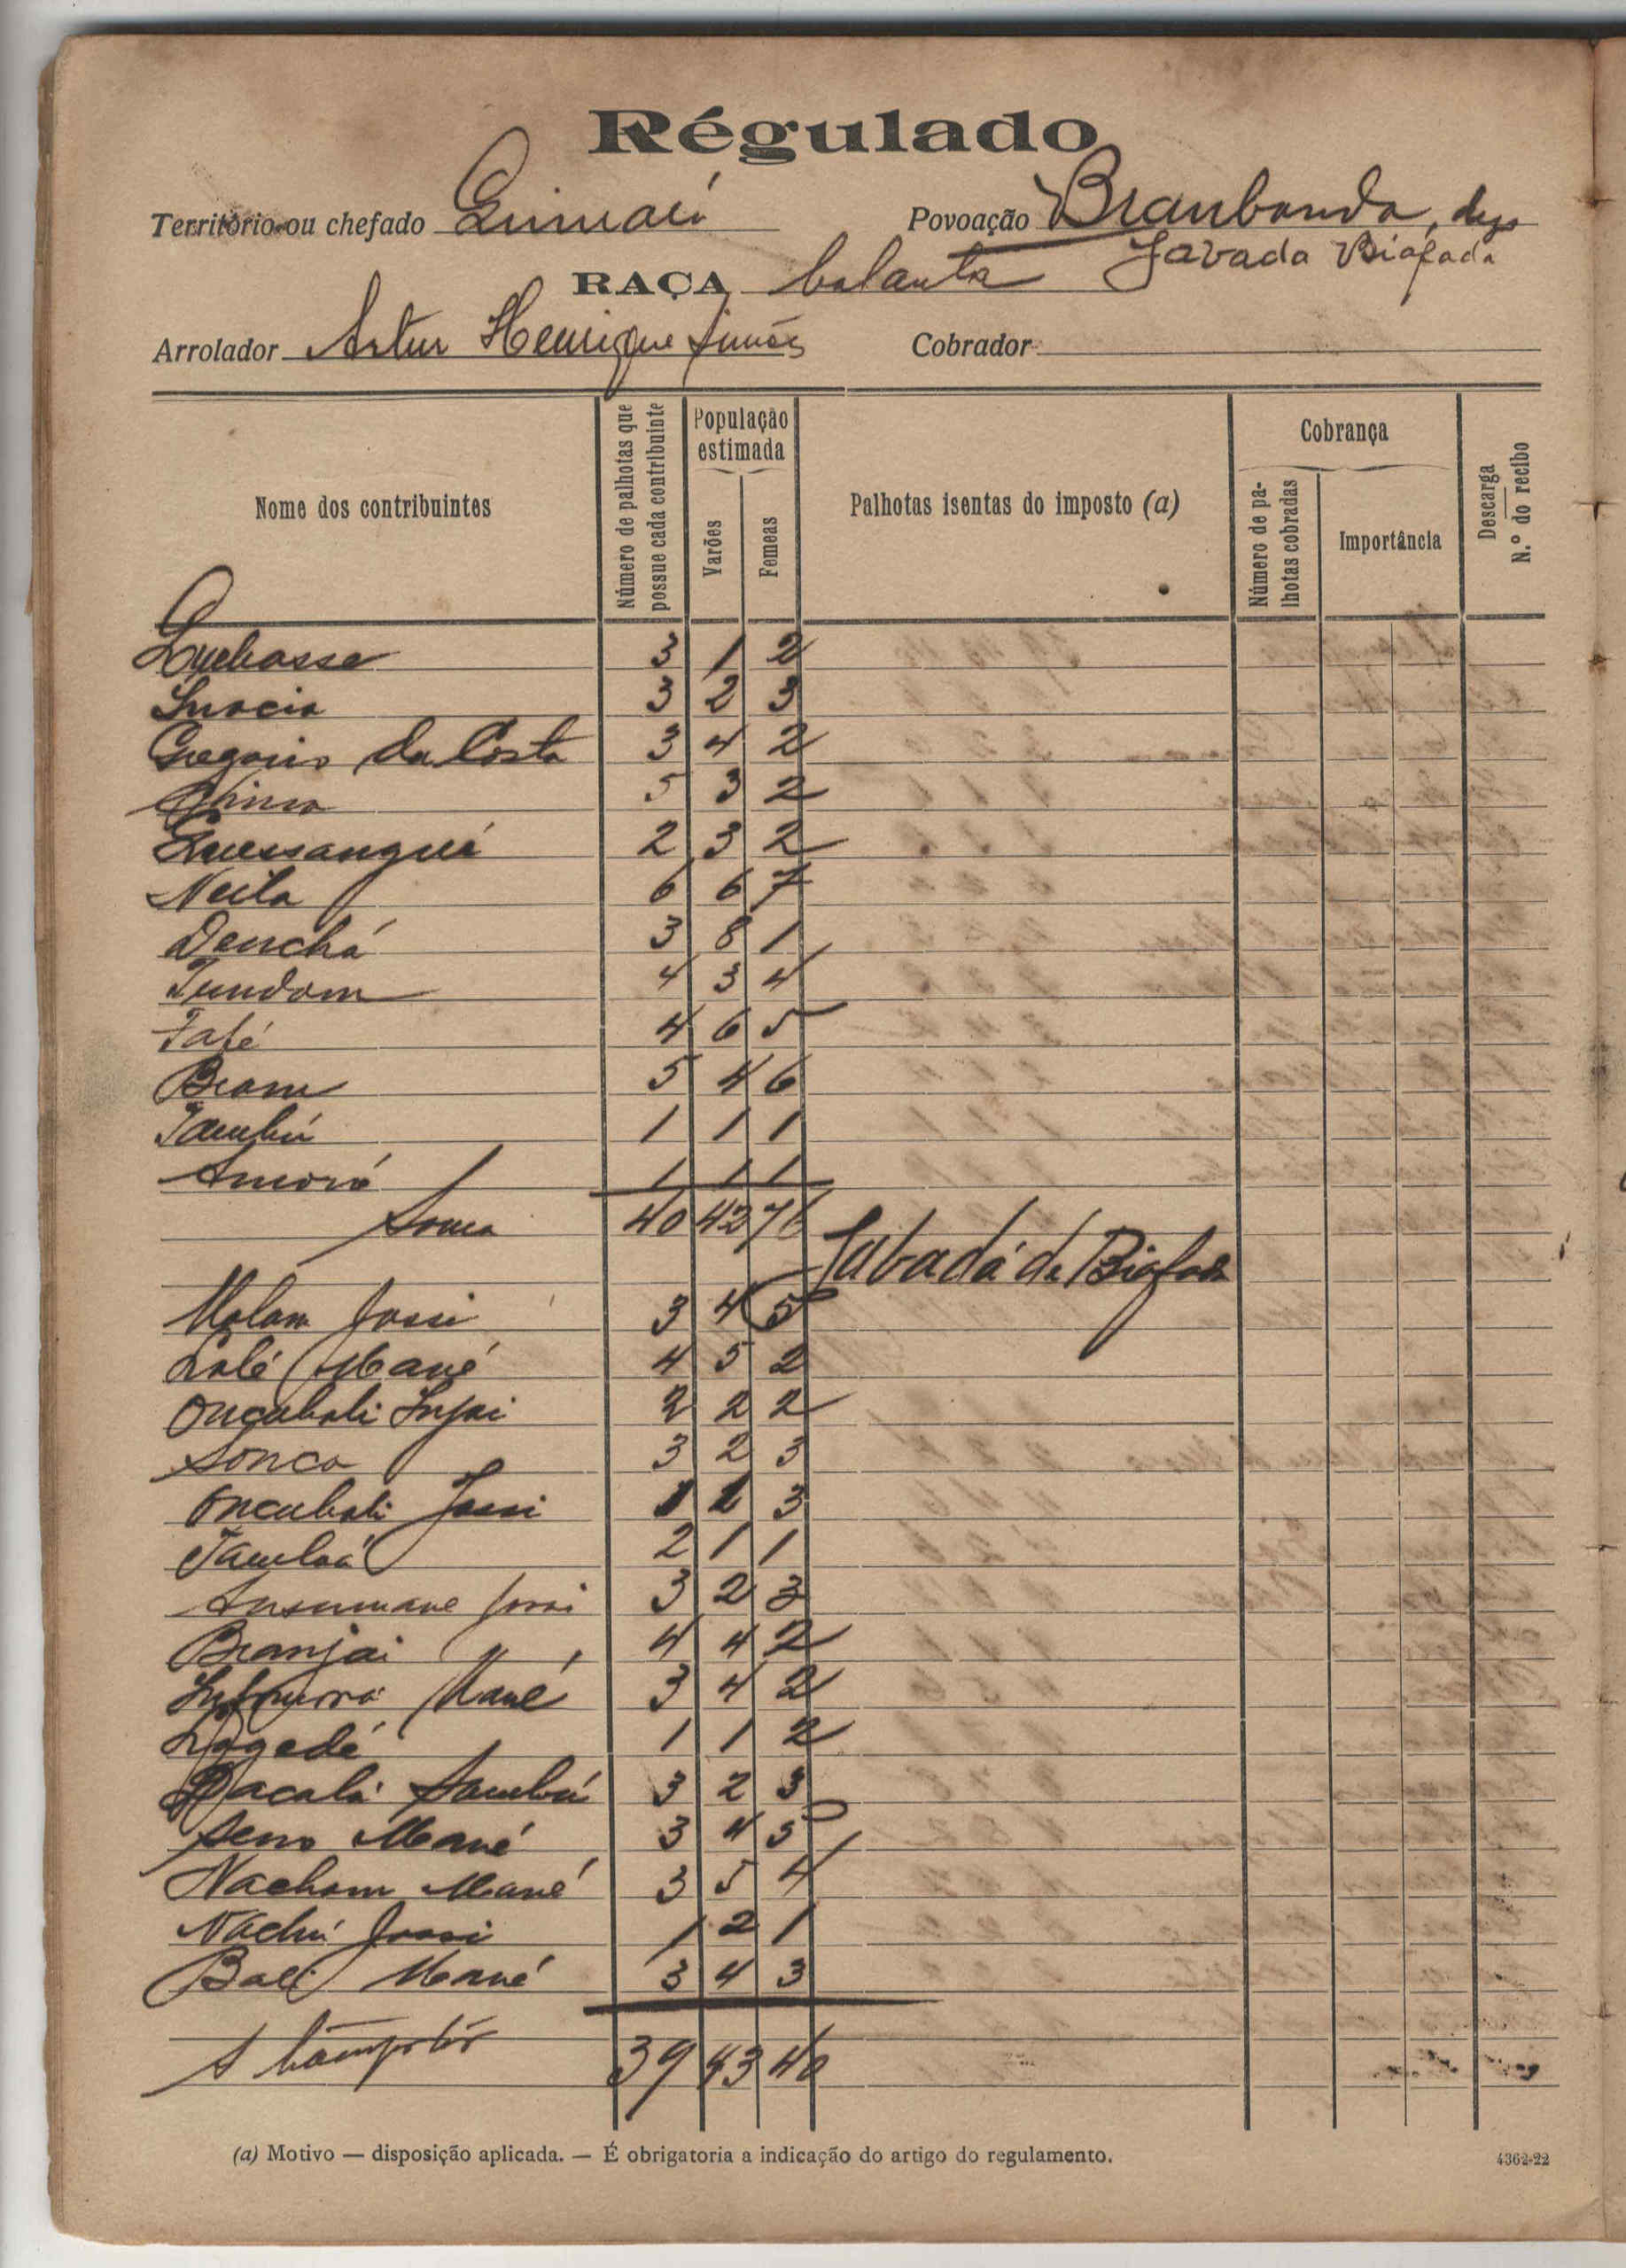 Régulado
Território ou chefado Quinará Povoação Brambanda, dep
Jabada Biafada
RAÇA balanta
Arrolador Artur Henrique Simões Cobrador
Nome dos contribuintes Número de palhotas que possue cada contribuinte População estimada Varões Femeas Palhotas isentas do imposto (a) Cobrança Número de palhotas cobradas Importância Descarga N.º do recibo
3 1 2
Inacio 3 2 3
Gregorio da Costa 3 4 2
5 3 2
2 3 2
Neila 6 6 7
Denchá 3 8 1
Tundam 4 3 4
Tabé 4 6 5
Bram 5 4 6
Tambú 1 1 1
1 1 1
Soma 40 42 76
Jabadá de Biafada
Malam Jassi 3 4 5
Lalé Mané 4 5 2
Oncubali Injai 2 2 2
Sonco 3 2 3
Oncubali Jassi 1 1 3
Tambá 2 1 1
Ansumane Jassi 3 2 3
Branjai 4 4 2
Mané 3 4 2
1 1 2
Bacalá Sambú 3 2 3
Seno Mané 3 4 5
Nacham Mané 3 5 4
Nachú Jassi 1 2 1
Bali Mané 3 4 3
A transportar 39 43 40
(a) Motivo — disposição aplicada. — É obrigatoria a indicação do artigo do regulamento.
4362-22